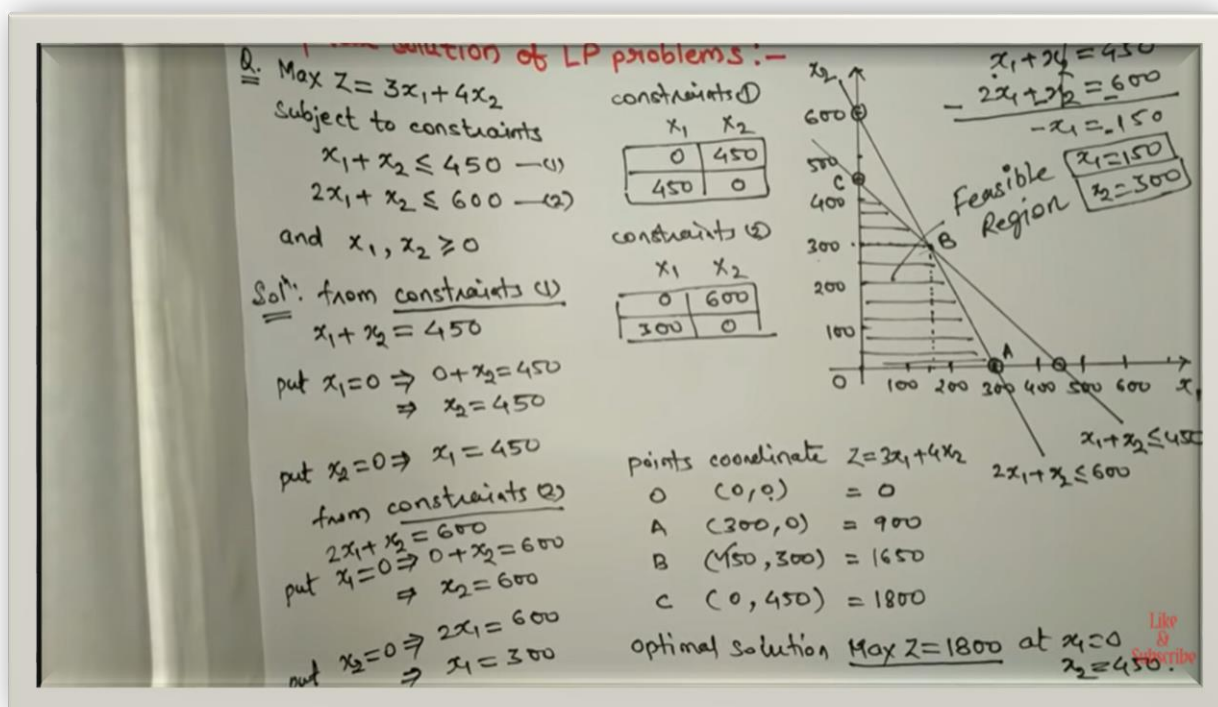 solution of LP problems:-
Q. Max Z = 3x₁+4x₂
Subject to constraints
x₁+x₂ ≤ 450 —(1)
2x₁+x₂ ≤ 600 —(2)
and x₁, x₂ ≥ 0
Solⁿ: from constraints (1)
x₁+x₂ = 450
put x₁=0 ⇒ 0+x₂=450
⇒ x₂=450
put x₂=0 ⇒ x₁=450
from constraints (2)
2x₁+x₂=600
put x₁=0 ⇒ 0+x₂=600
⇒ x₂=600
put x₂=0 ⇒ 2x₁=600
⇒ x₁=300
constraints ①
x₁ x₂
0 450
450 0
constraints ②
x₁ x₂
0 600
300 0
x₁+x₂=450
- 2x₁+x₂=600
-x₁=-150
x₁=150
x₂=300
x₂
600
500
C
400
300
200
100
0 100 200 300 400 500 600 x₁
B
A
Feasible
Region
x₁+x₂≤450
2x₁+x₂≤600
points coordinate Z=3x₁+4x₂
O (0,0) = 0
A (300,0) = 900
B (150,300) = 1650
C (0,450) = 1800
optimal solution Max Z=1800 at x₁=0
x₂=450.
Like
&
Subscribe